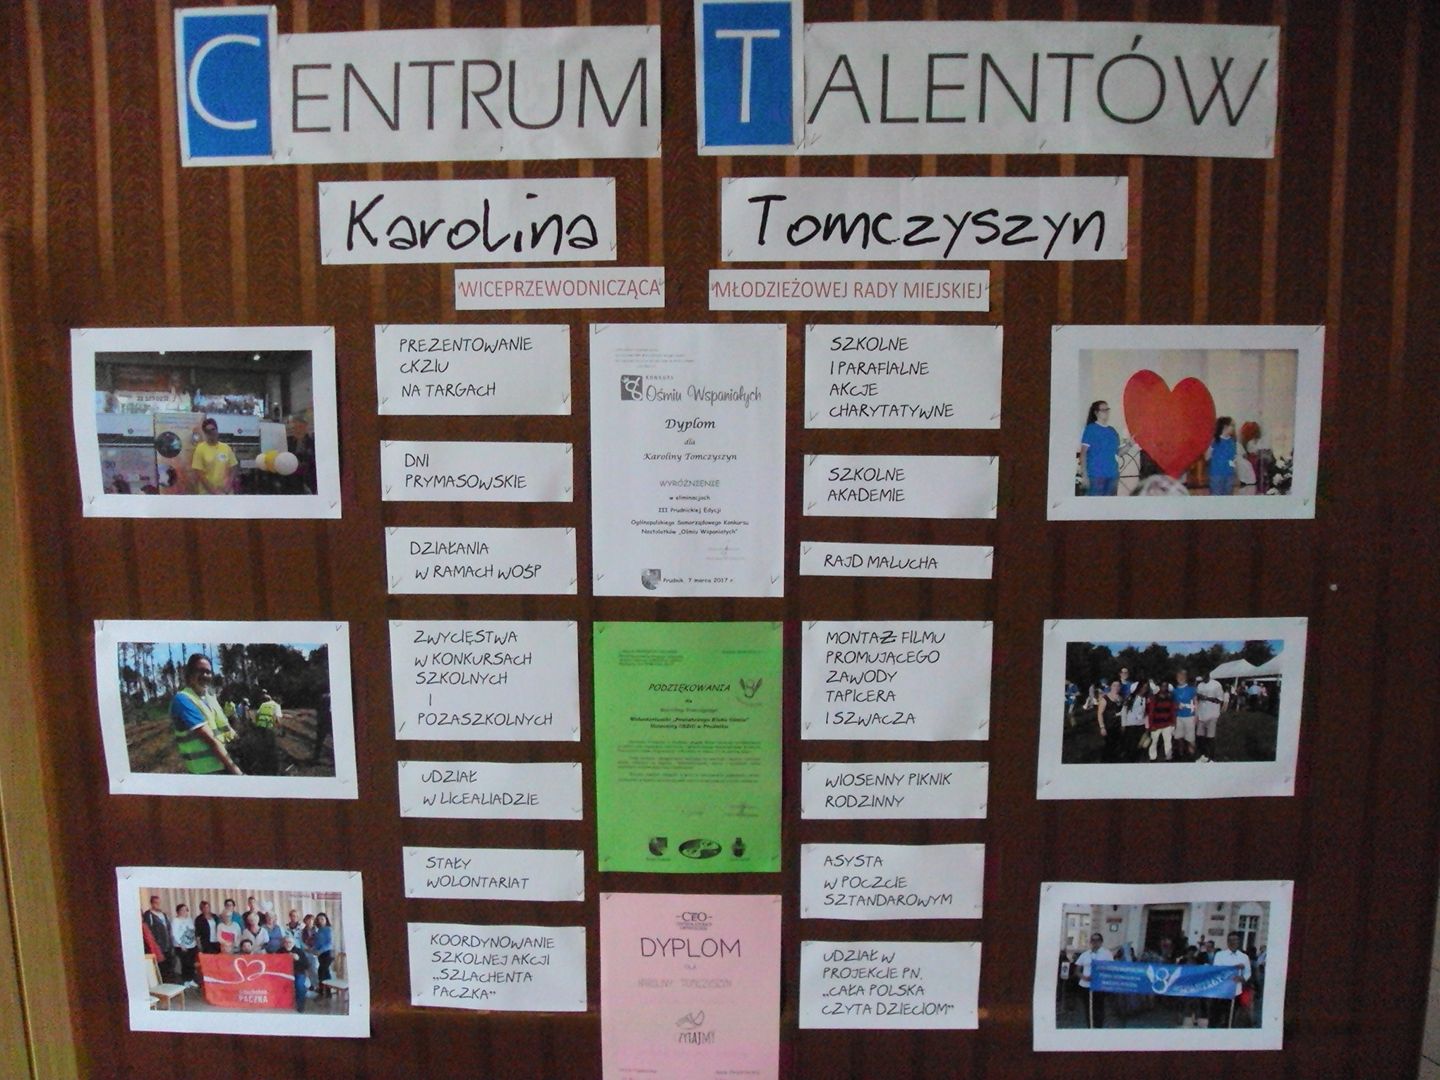 CENTRUM TALENTÓW
Karolina Tomczyszyn
WICEPRZEWODNICZĄCA MŁODZIEŻOWEJ RADY MIEJSKIEJ
PREZENTOWANIE
CKZIU
NA TARGACH
DNI
PRYMASOWSKIE
DZIAŁANIA
W RAMACH WOŚP
ZWYCIĘSTWA
W KONKURSACH
SZKOLNYCH
I
POZASZKOLNYCH
UDZIAŁ
W LICEALIADZIE
STAŁY
WOLONTARIAT
KOORDYNOWANIE
SZKOLNEJ AKCJI
„SZLACHENTA
PACZKA"
KONKURS
Ośmiu Wspaniałych
Dyplom
dla
Karoliny Tomczyszyn
WYRÓŻNIENIE
w eliminacjach
III Prudnickiej Edycji
Ogólnopolskiego Samorządowego Konkursu
Nastolatków „Ośmiu Wspaniałych"
Prudnik, 7 marca 2017 r.
PODZIĘKOWANIA
dla
CEO
DYPLOM
DLA
KAROLINY TOMCZYSZYN
CZYTAJMY
SZKOLNE
I PARAFIALNE
AKCJE
CHARYTATYWNE
SZKOLNE
AKADEMIE
RAJD MALUCHA
MONTAŻ FILMU
PROMUJĄCEGO
ZAWODY
TAPICERA
I SZWACZA
WIOSENNY PIKNIK
RODZINNY
ASYSTA
W POCZCIE
SZTANDAROWYM
UDZIAŁ W
PROJEKCIE PN.
„CAŁA POLSKA
CZYTA DZIECIOM"
PACZKA